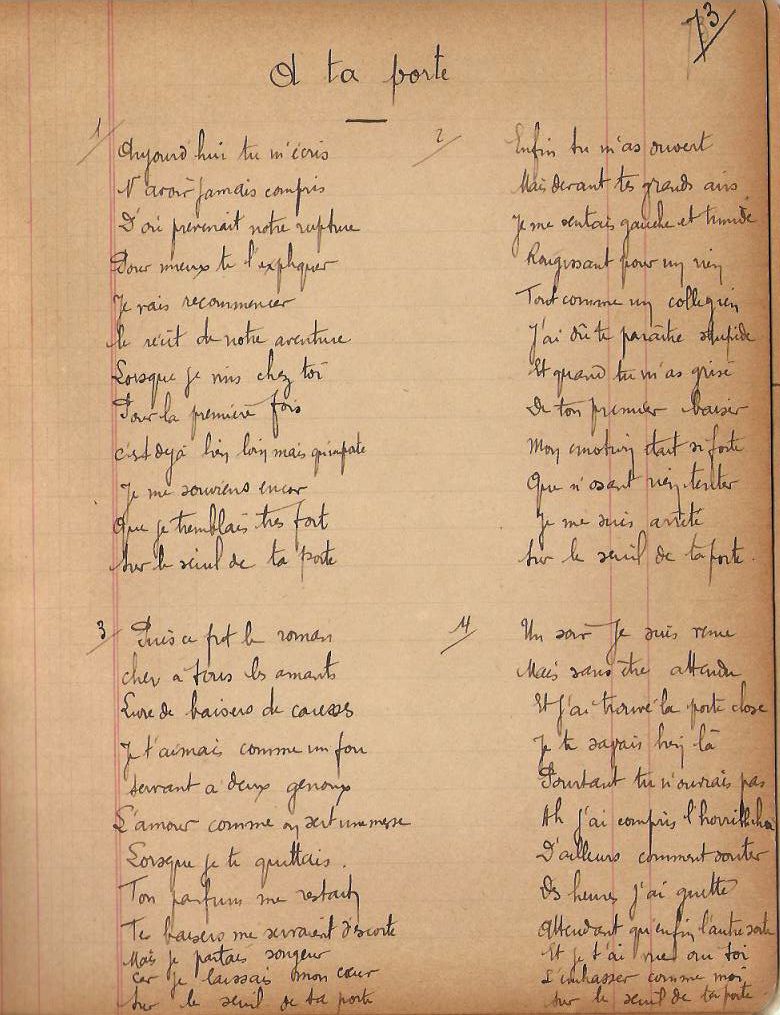 73
A ta porte
1/
Aujourd'hui tu m'écris
N'avoir jamais compris
D'où provenait notre rupture
Pour mieux te l'expliquer
Je vais recommencer
le récit de notre aventure
Lorsque je vins chez toi
Pour la première fois
c'est dejà bien loin mais qu'importe
Je me souviens encor
Que je tremblais tres fort
Sur le seuil de ta porte
2/
Enfin tu m'as ouvert
Mais devant tes grands airs
Je me sentais gauche et timide
Rougissant pour un rien
Tout comme un collegien
J'ai dû te paraître stupide
Et quand tu m'as grisé
De ton premier baiser
Mon emotion était si forte
Que n'osant rien tenter
Je me suis arrêté
Sur le seuil de ta porte.
3/
Puis ce fut le roman
cher à tous les amants
Livre de baisers de caresses
Je t'aimais comme un fou
servant a deux genoux
L'amour comme on sert une messe
Lorsque je te quittais.
Ton parfum me restait
Tes baisers me servaient d'escorte
Mais je partais songeur
Car je laissais mon cœur
Sur le seuil de ta porte
4/
Un soir Je suis venu
Mais sans être attendu
Et J'ai trouvé la porte close
Je te savais bien là
Pourtant tu n'ouvrais pas
Ah j'ai compris l'horrible
D'ailleurs comment douter
Des heures j'ai guetté
Attendant qu'enfin l'autre sorte
Et je t'ai vue oui toi
L'embrasser comme moi
Sur le seuil de ta porte